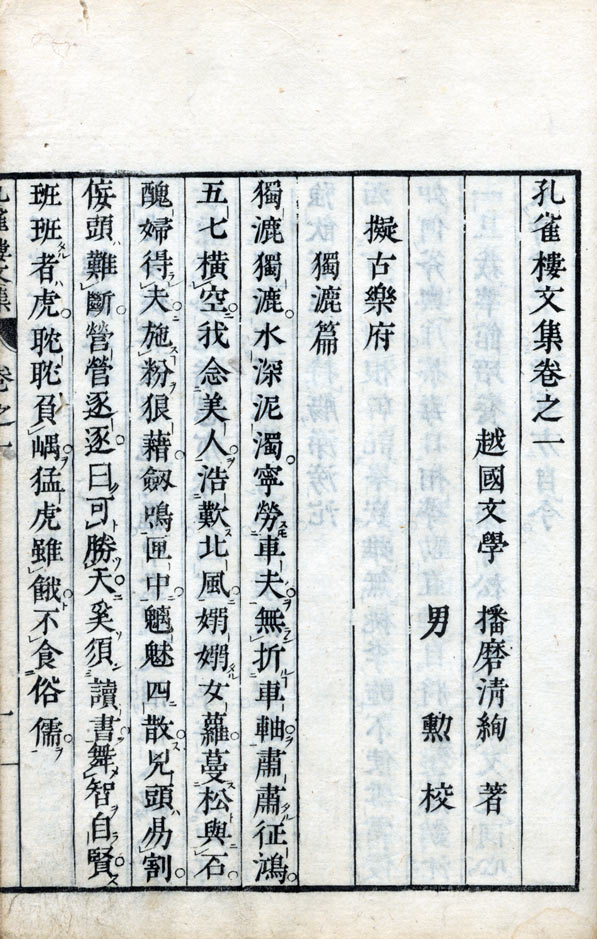 孔雀樓文集卷之一
越國文學 播磨清絢 著
男 勲 校
擬古樂府
獨漉篇
獨漉獨漉水深泥濁寧勞車夫無折車軸肅肅征鴻
五七橫空我念美人浩歎北風嫋嫋女蘿蔓松與石
醜婦得夫施粉狼藉劔鳴匣中魑魅四散兇頭易割
侫頭難斷營營逐逐曰可勝天奚須讀書舞智自賢
班班者虎耽耽負嵎猛虎雖餓不食俗儒
孔雀樓文集 卷之一 一